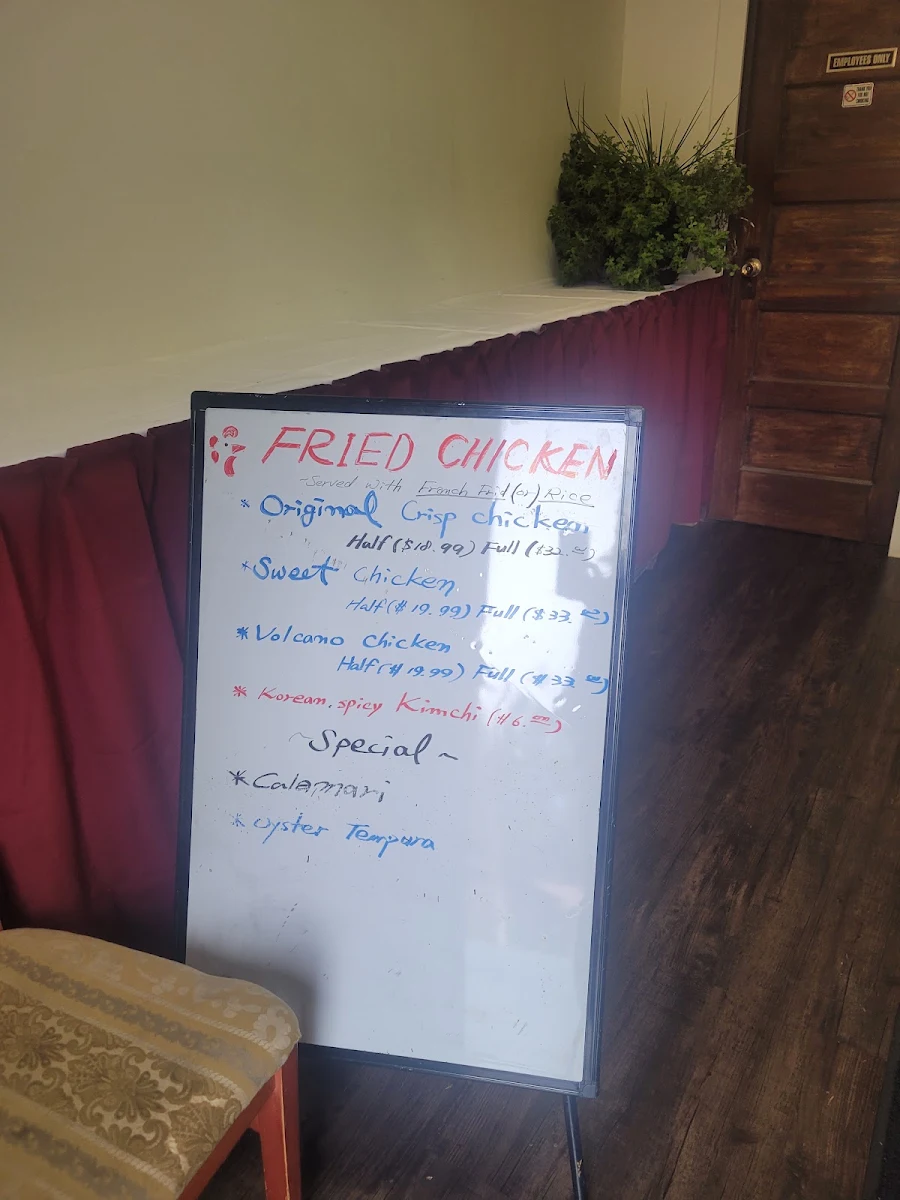 EMPLOYEES ONLY
THANK YOU
FOR NOT
SMOKING
FRIED CHICKEN
~Served with French Frid (or) Rice
* Original Crisp chicken
Half ($18.99) Full ($32.00)
* Sweet Chicken
Half ($19.99) Full ($33.00)
* Volcano chicken
Half ($19.99) Full ($33.00)
* Korean. spicy Kimchi ($6.00)
~Special~
* Calamari
* Oyster Tempura